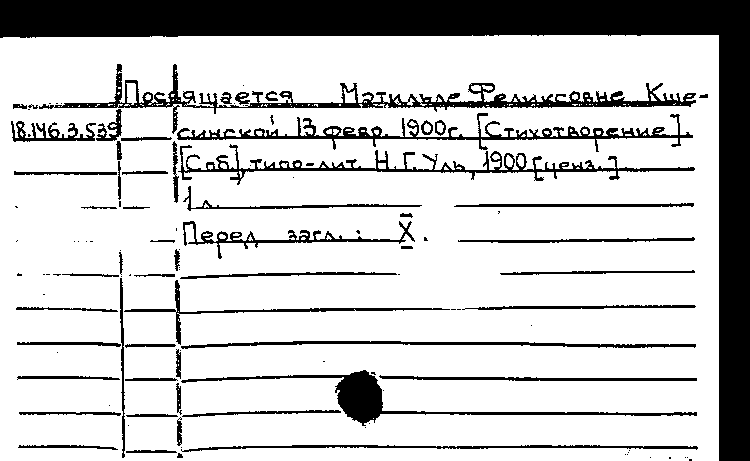 Посвящается Матильде Феликсовне Кше-
18.146.3.539 синской. 13 февр. 1900г. [Стихотворение].
[Спб], типо-лит. Н. Г. Уль, 1900 [ценз.]
1 л.
Перед загл.: X.